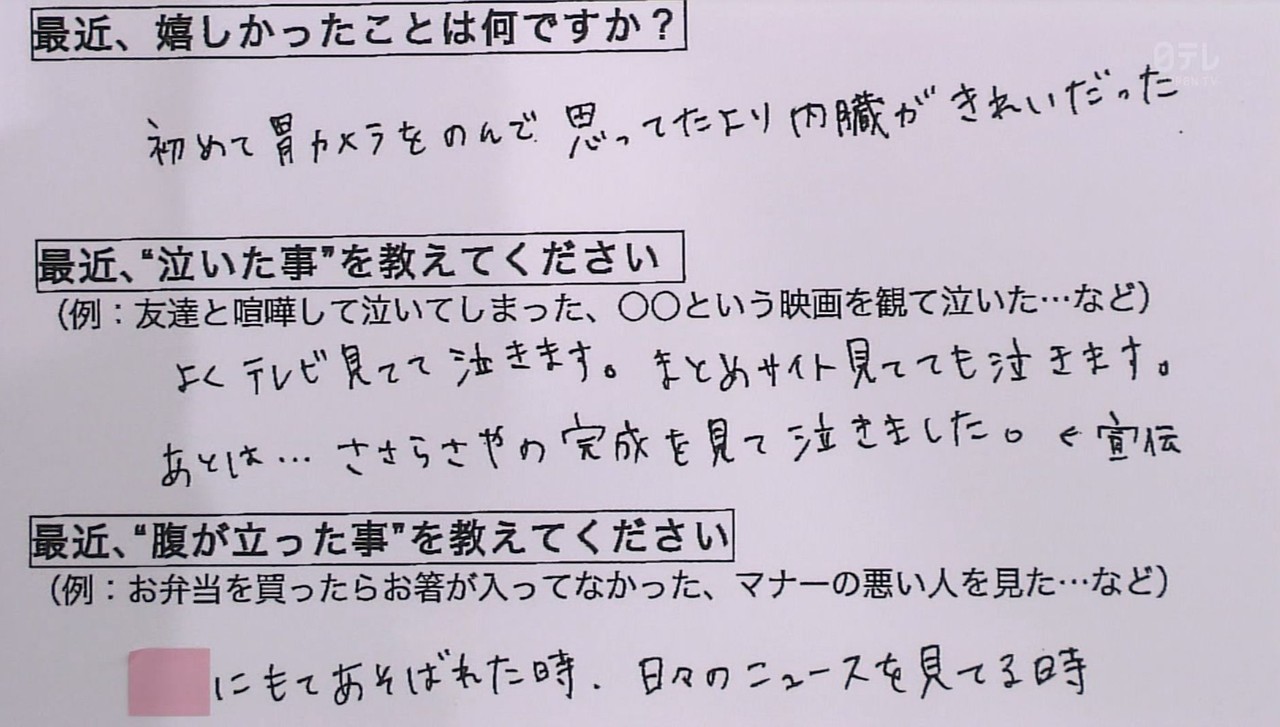 最近、嬉しかったことは何ですか？
日テレ
初めて胃カメラをのんで 思ってたより内臓がきれいだった.
最近、“泣いた事”を教えてください
（例：友達と喧嘩して泣いてしまった、〇〇という映画を観て泣いた…など）
よくテレビ見てて泣きます。まとめサイト見てても泣きます。
あとは… ささらさやの完成を見て泣きました。←宣伝
最近、“腹が立った事”を教えてください
（例：お弁当を買ったらお箸が入ってなかった、マナーの悪い人を見た…など）
にもてあそばれた時. 日々のニュースを見てる時